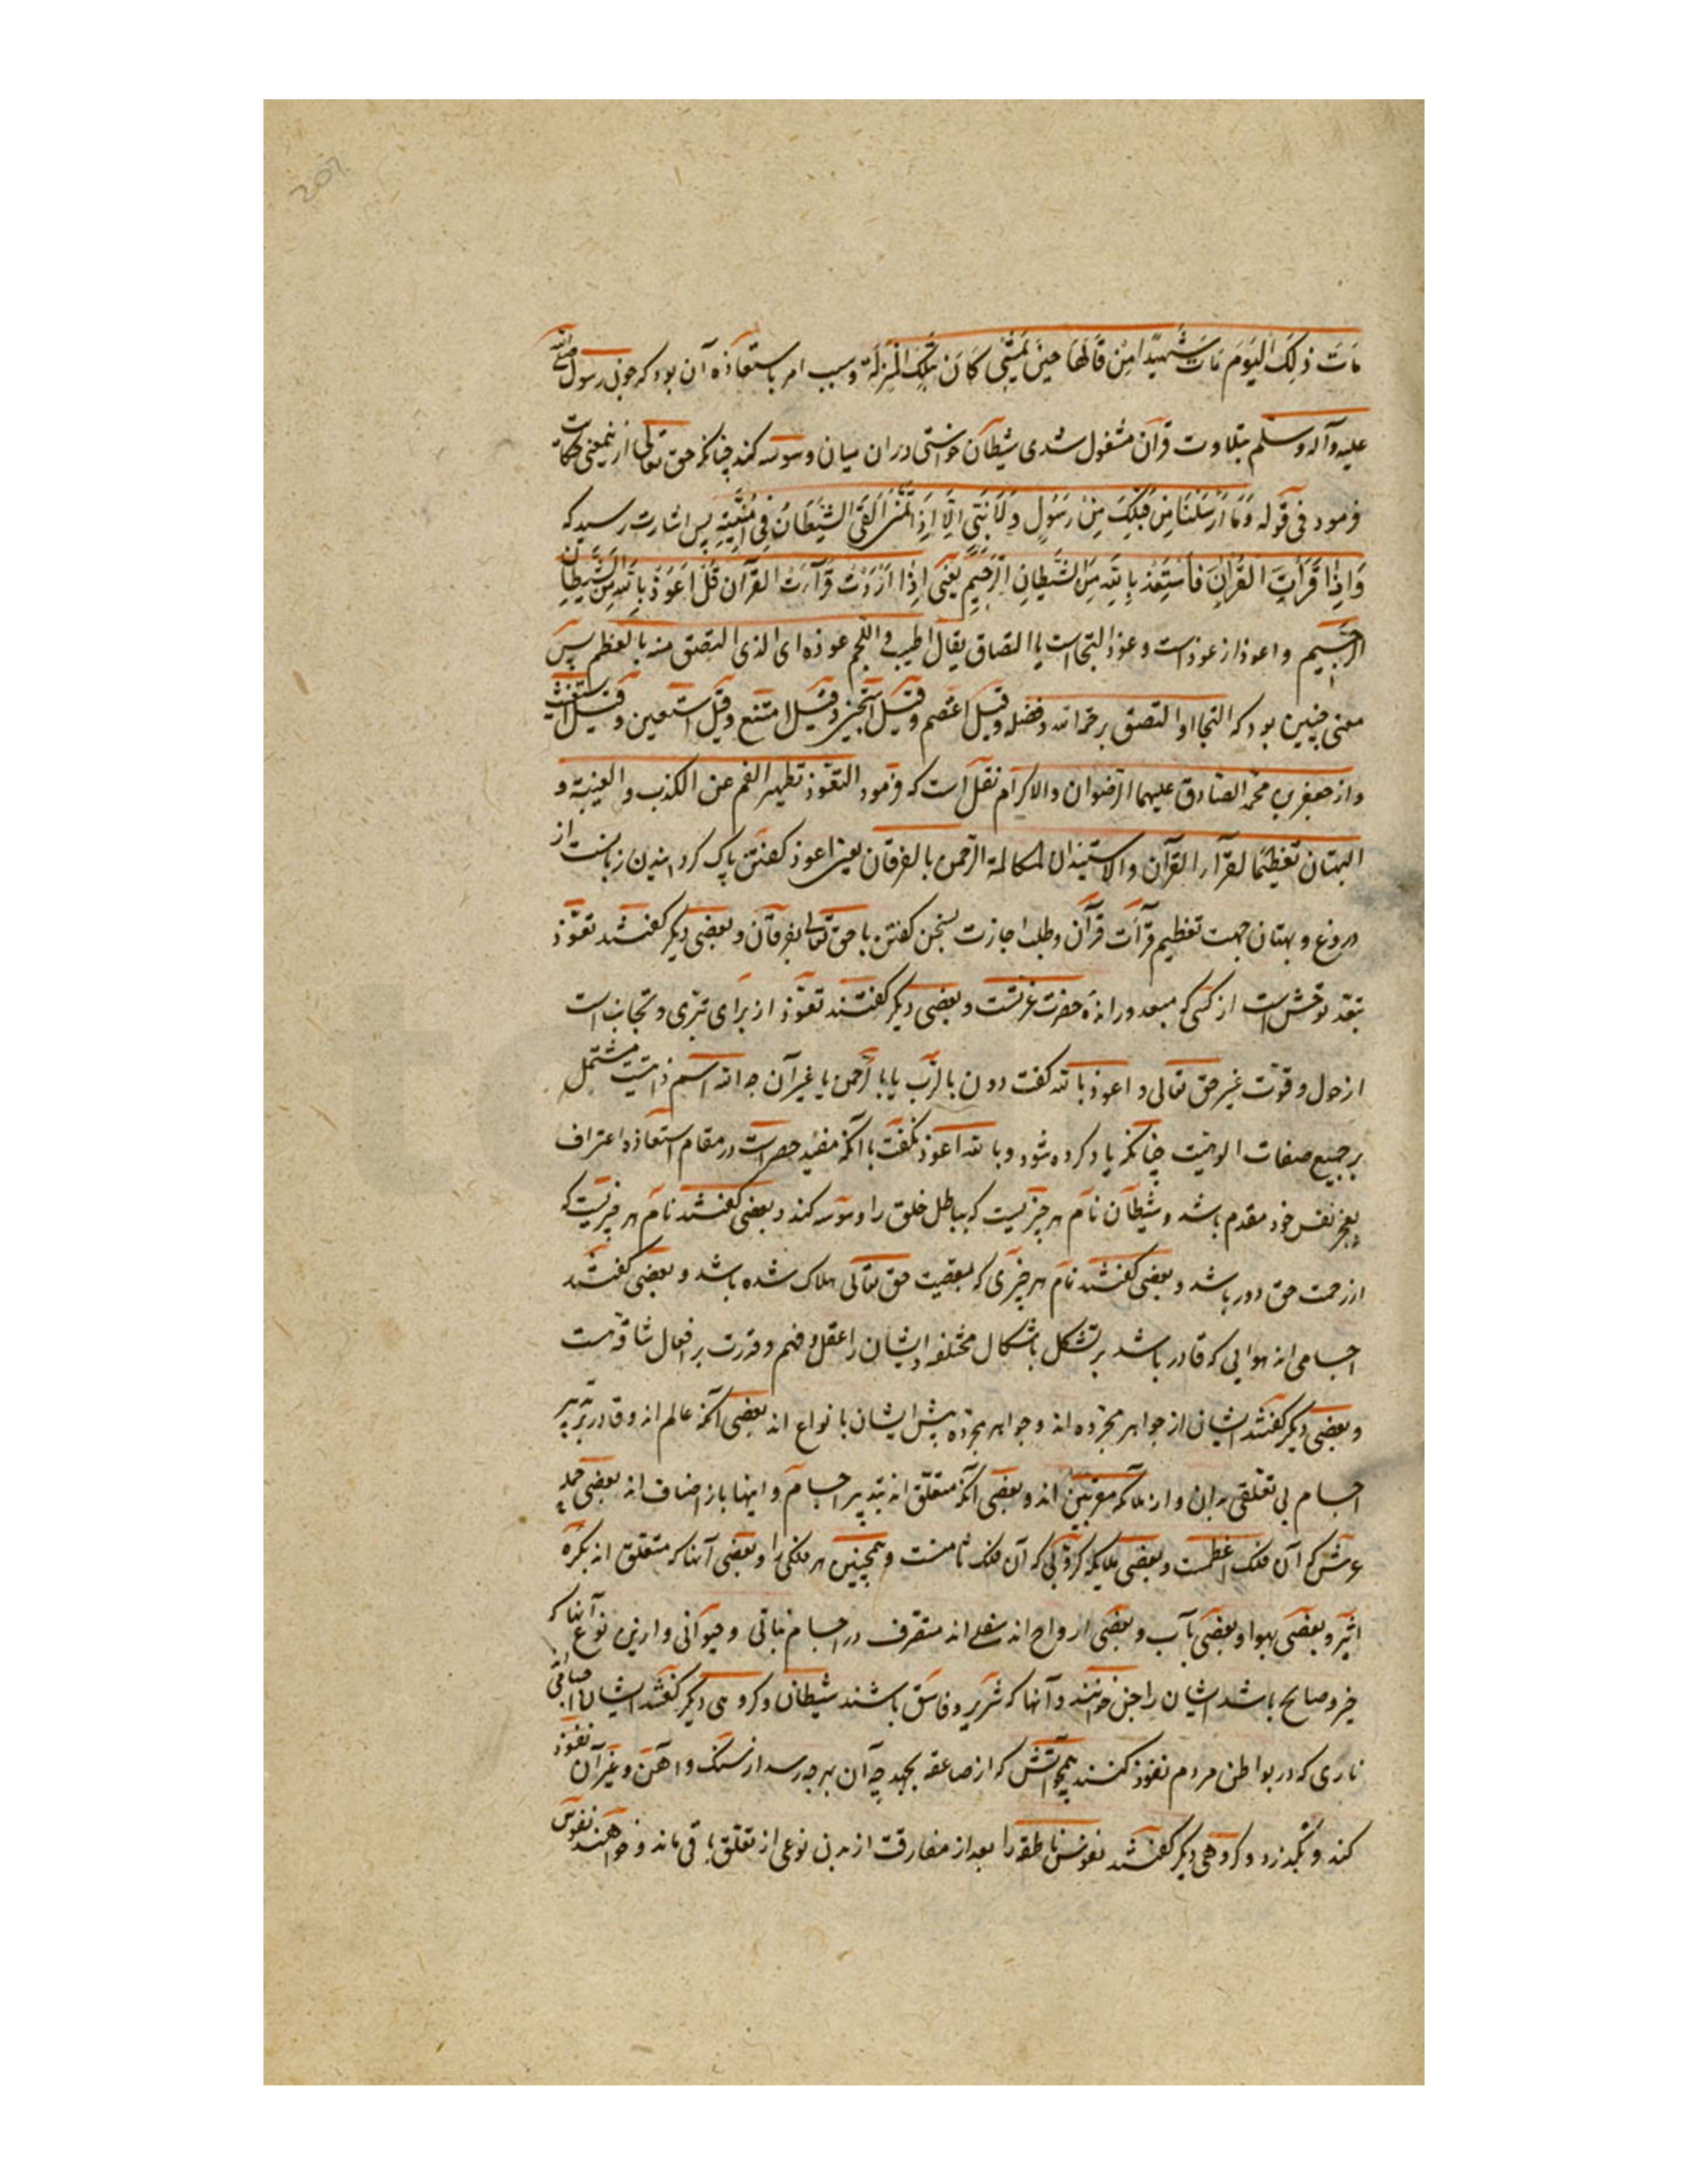 مَاتَ ذٰلِكَ الْيَوْمَ مَاتَ شَهِيدًا مِنْ قَالَهَا حِينَ يُمْسِي كَانَ بِتِلْكَ الْمَنْزِلَة وسبب امر باستعاذه آن بود كه چون رسول صلى الله
عليه وآله وسلم بتلاوت قرآن مشغول شدى شيطان خواستى در ان ميان وسوسه كند چنانكه حق تعالى ازينمعنى حكايت
فرمود فى قوله وَمَا أَرْسَلْنَا مِنْ قَبْلِكَ مِنْ رَسُولٍ وَلَا نَبِيٍّ إِلَّا إِذَا تَمَنَّى أَلْقَى الشَّيْطَانُ فِي أُمْنِيَّتِهِ پس اشارت رسيد كه
وَإِذَا قَرَأْتَ الْقُرْآنَ فَاسْتَعِذْ بِاللَّهِ مِنَ الشَّيْطَانِ الرَّجِيمِ يعنى اذا اردت قرآءت القرآن قل اعوذ بالله من الشيطان
الرجيم و اعوذ از عوذ است و عوذ التجاست يا التصاق يقال اطيب اللحم عوذه اى الذى التصق منه بالعظم پس
معنى چنين بود كه التجا او التصق برحمة الله وفضله وقيل اعتصم وقيل استجير وقيل امتنع وقيل استعين وقيل استغيث
واز جعفر بن محمد الصادق عليهما الرضوان والاكرام نقل است كه فرمود التعوذ تطهير الفم عن الكذب والغيبة و
البهتان تعظيما لقرآءة القرآن والاستيذان لمكالمة الرحمن بالفرقان يعنى اعوذ گفتن پاك گردانيدن زبانست از
دروغ و بهتان جهت تعظيم قرآءت قرآن وطلب اجازت سخن گفتن با حق تعالى بفرقان و بعضى ديگر گفتند تعوذ
تبعد توحش است از كسى كه مبعد و رانده حضرت عزتست و بعضى ديگر گفتند تعوذ از براى تبرى و تجانب است
از حول و قوت غير حق تعالى و اعوذ بالله گفت دون بالرب يا بالرحمن يا غير آن چه الله اسم ذاتيست مشتمل
بر جميع صفات الوهيت چنانكه ياد كرده شود و بالله اعوذ نگفت با آنكه مفيد حصر است در مقام استعاذه اعتراف
بعجز نفس خود مقدم باشد و شيطان نام هر چيزيست كه بباطل خلق را وسوسه كند و بعضى گفتند نام هر چيزيست كه
از رحمت حق دور باشد و بعضى گفتند نام هر چيزى كه بمعصيت حق تعالى هلاك شده باشد و بعضى گفتند
اجسامى اند هوايى كه قادر باشند بر تشكل باشكال مختلفه و ايشان را عقل و فهم و قدرت بر افعال شاقه هست
و بعضى ديگر گفتند ايشان از جواهر مجرده اند و جواهر مجرده پيش ايشان بانواع اند بعضى آنكه عالم اند و قادر بتدبير
اجسام بى تعلقى بدان و از ملائكه مقربين اند و بعضى آنكه متعلق اند بتدبير اجسام و اينها باز اصناف اند بعضى حمله
عرش كه آن فلك اعظمست و بعضى ملايكه كروبى كه آن فلك ثامنست و همچنين هر فلكى را و بعضى آنها كه متعلق اند بكره
اثير و بعضى بهوا و بعضى بآب و بعضى ارواح اند سفلى اند متصرف در اجسام نباتى و حيوانى و ازين نوع آنها كه
خير و صالح باشند ايشان را جن خوانند و آنها كه شرير و فاسق باشند شيطان و گروهى ديگر گفتند ايشان اجسامى اند
نارى كه در بواطن مردم نفوذ كنند همچو آتش كه از صاعقه بجهد چه آن بهر چه رسد از سنگ و آهن و غير آن نفوذ
كند و بگذرد و گروهى ديگر گفتند نفوس ناطقه را بعد از مفارقت از بدن نوعى از تعلق باقى ماند و خواهند نفوس